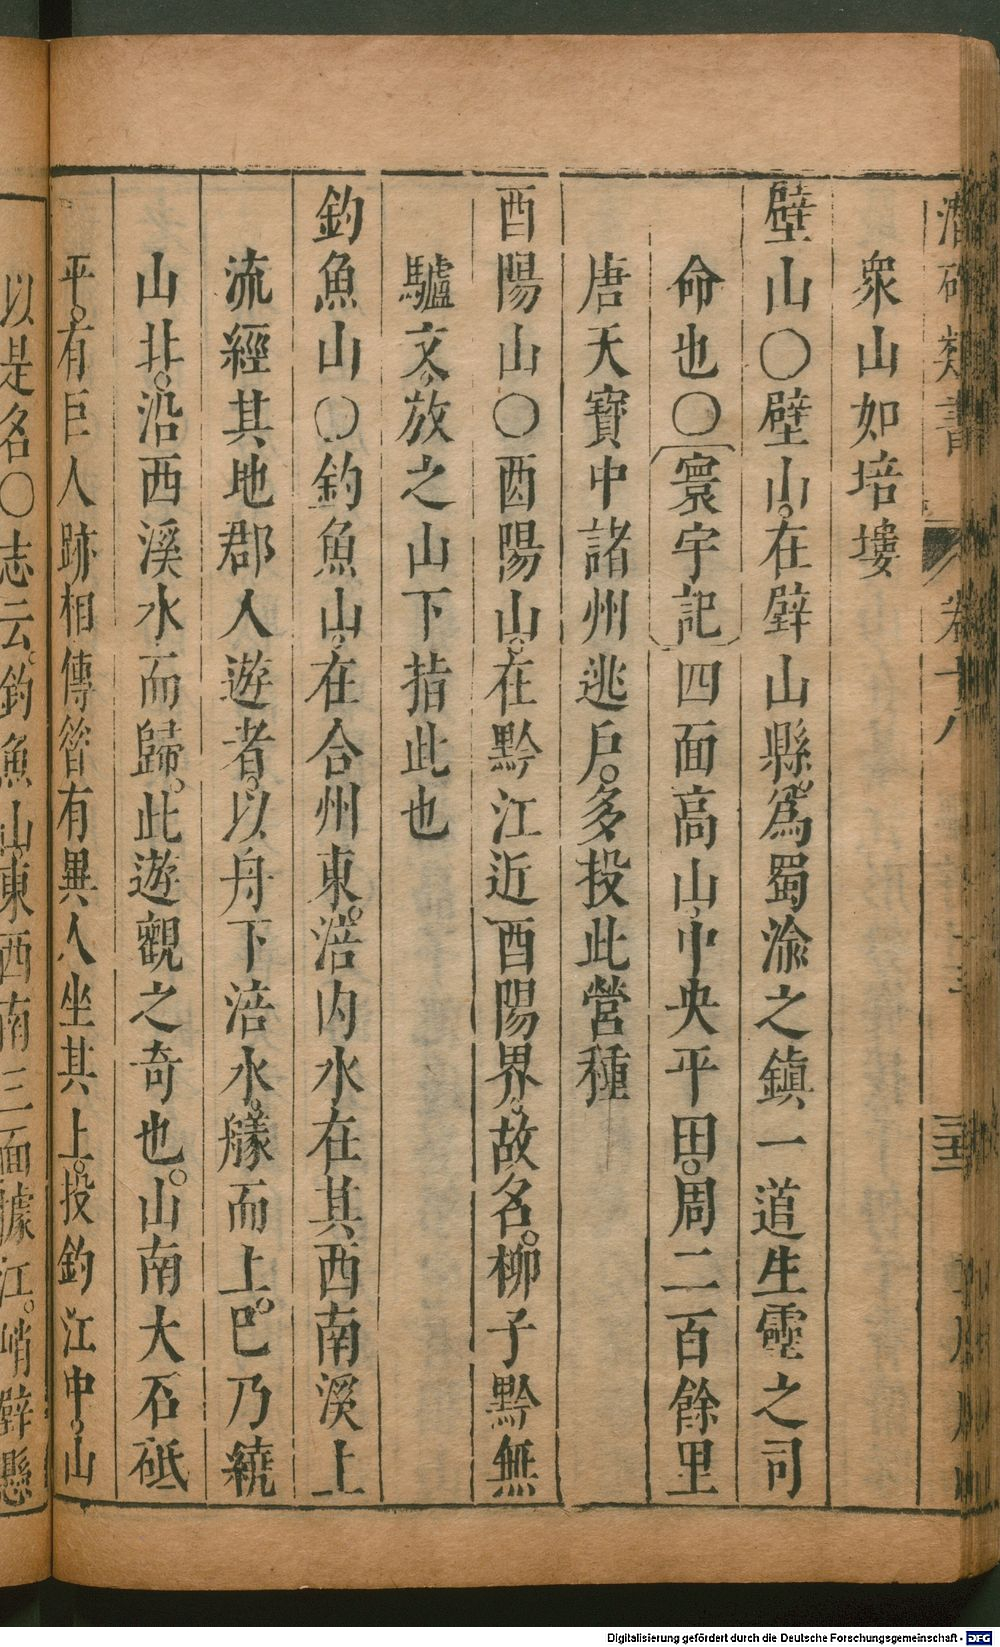 潛確類書 卷十八
衆山如培塿
壁山〇壁山在壁山縣爲蜀渝之鎮一道生靈之司
命也〇寰宇記四面高山中央平田周二百餘里
唐天寶中諸州逃戸多投此營種
酉陽山〇酉陽山在黔江近酉陽界故名柳子黔無
驢文放之山下指此也
釣魚山〇釣魚山在合州東涪内水在其西南溪上
流經其地郡人遊者以舟下涪水艨而上已乃繞
山北沿西溪水而歸此遊觀之奇也山南大石砥
平有巨人跡相傳昝有異人坐其上投釣江中山
以是名〇志云釣魚山東西南三面據江峭壁懸
Digitalisierung gefördert durch die Deutsche Forschungsgemeinschaft - DFG